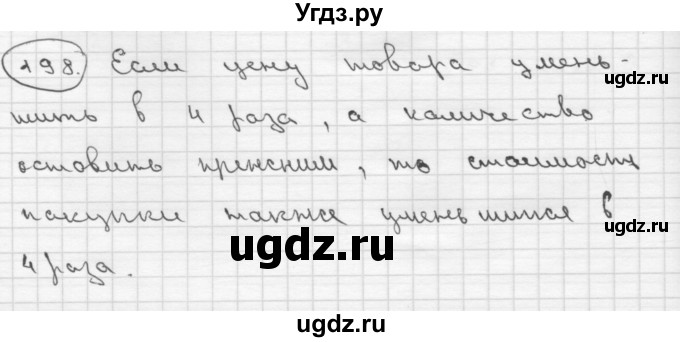 Угдз.ру
198. Если цену товара умень-
ugdz.ru
шить в 4 раза, а количество
оставить прежним, то стоимость
ugdz.ru
покупки также уменьшится в
ugdz.ru
4 раза.
ugdz.ru
ugdz.ru